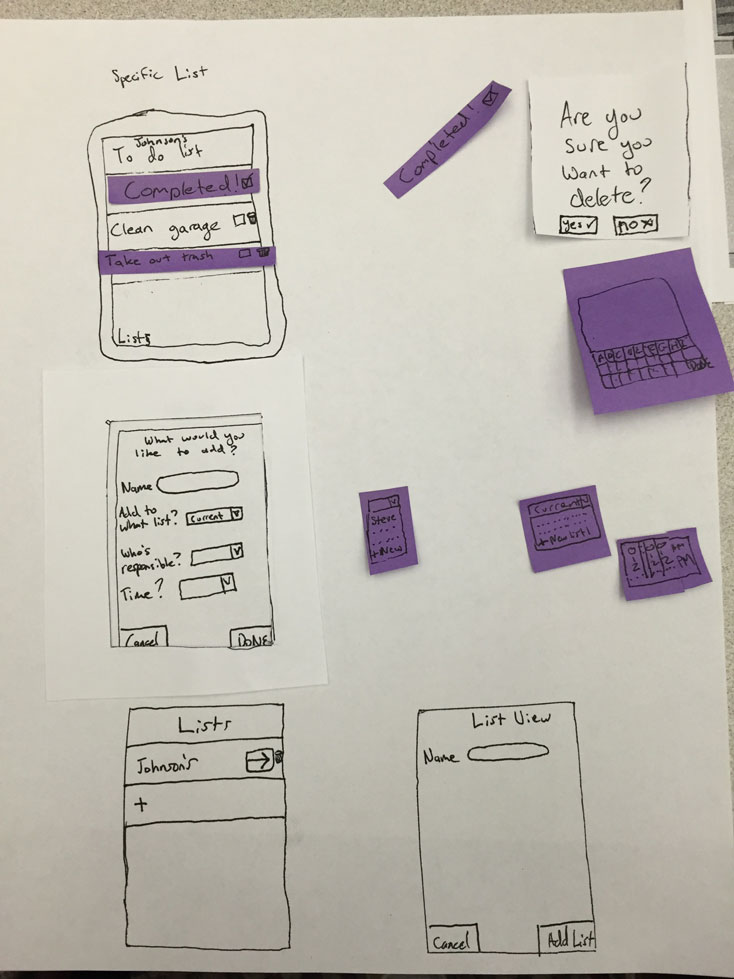 Specific List
Johnson's
To do list
Completed!
Clean garage
Take out trash
Lists
Completed!
Are you
sure you
want to
delete?
yes
no
Done
What would you
like to add?
Name
Add to
what list?
Current
Who's
responsible?
Time?
Cancel
DONE
Steve
+New
Current
+New list
Lists
Johnson's
+
List View
Name
Cancel
Add List